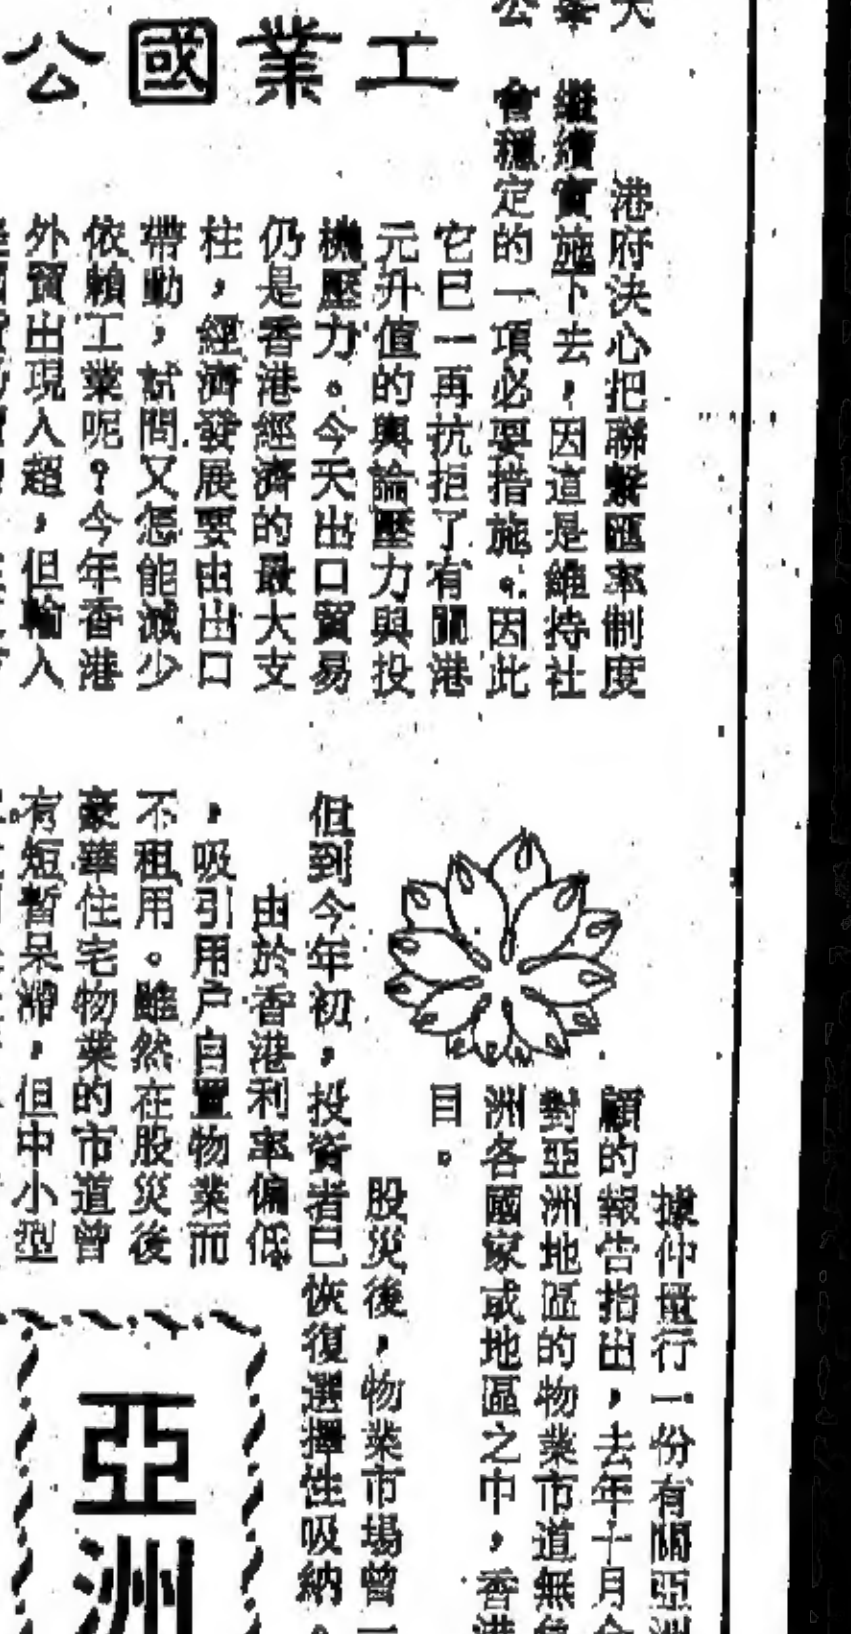 工業國公
港府決心把聯繫匯率制度
繼續實施下去，因這是維持社
會穩定的一項必要措施。因此
它已一再抗拒了有關港
元升值的輿論壓力與投
機壓力。今天出口貿易
仍是香港經濟的最大支
柱，經濟發展要由出口
帶動，試問又怎能減少
依賴工業呢？今年香港
外貿出現入超，但輸入
據仲量行一份有關亞洲
顧的報告指出，去年十月全
對亞洲地區的物業市道無
洲各國家或地區之中，香港
目。
股災後，物業市場曾一
但到今年初，投資者已恢復選擇性吸納。
由於香港利率偏低
，吸引用户自置物業而
不租用。雖然在股災後
豪華住宅物業的市道曾
有短暫呆滯，但中小型
亞洲